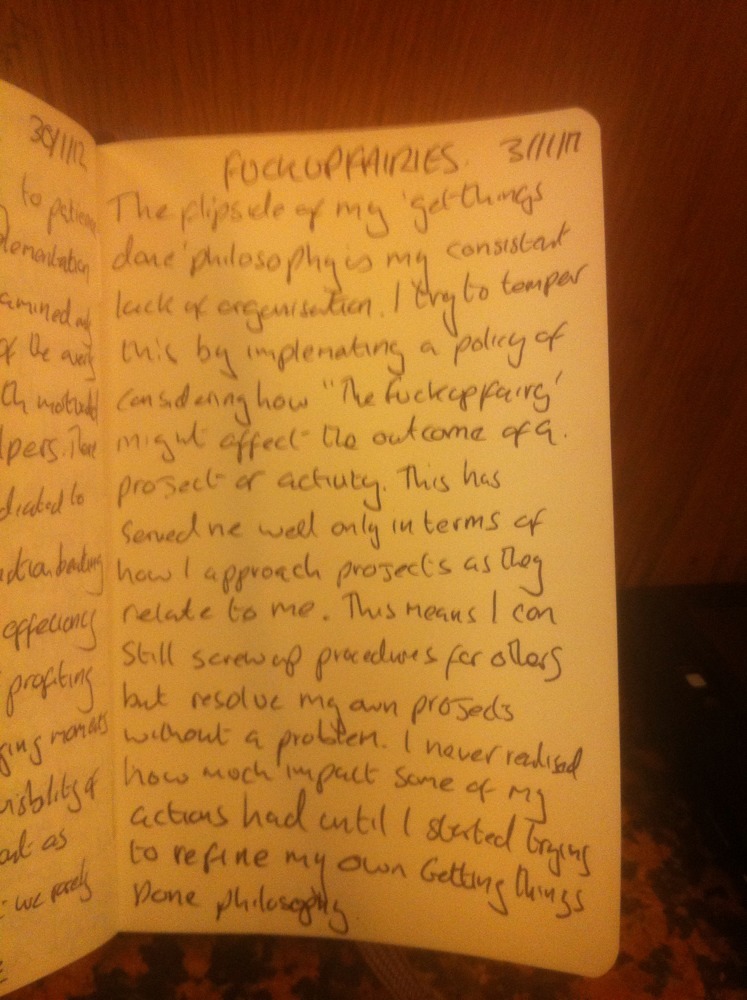 30/1/12
to patience
plementation
amined
of the every
th motivated
lpers. There
dicated to
effeciency
profiting
ging moments
visibility of
as
we rarely
FUCKUPFAIRIES. 31/1/12
The flipside of my 'get things
done' philosophy is my consistent
lack of organisation. I try to temper
this by implenating a policy of
considering how "The fuckupfairy'
might affect the outcome of a
project or activity. This has
served me well only in terms of
how I approach projects as they
relate to me. This means I can
still screw up procedures for others
but resolve my own projects
without a problem. I never realised
how much impact some of my
actions had until I started trying
to refine my own Getting things
Done philosophy